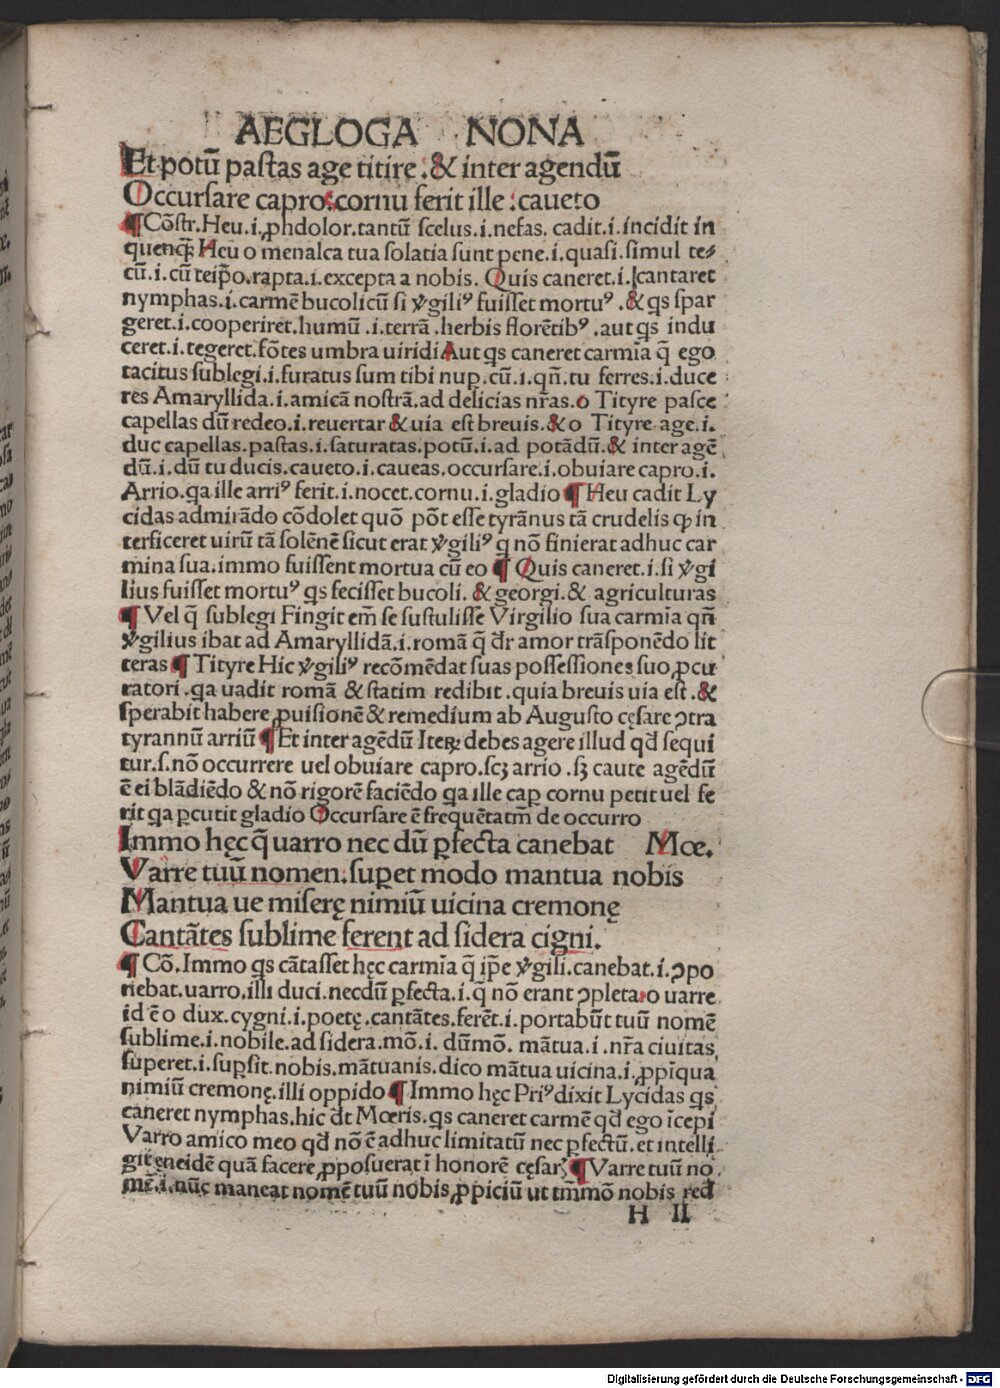 AEGLOGA NONA
Et potū pastas age titire .& inter agendū
Occursare capro: cornu ferit ille : caueto
¶ Cōstr. Heu .i. ꝓhdolor. tantū scelus .i. nefas. cadit .i. incidit in
quenqꝫ Heu o menalca tua solatia sunt pene .i. quasi. simul te⸗
cū .i. cū teip̄o. rapta .i. excepta a nobis. Quis caneret .i. cantaret
nymphas .i. carmē bucolicū si v̓giliꝰ fuisset mortuꝰ .& qs spar
geret .i. cooperiret. humū .i. terrā .herbis florētibꝰ .aut qs indu
ceret .i. tegeret. fōtes umbra uiridi Aut qs caneret carmīa q̄ ego
tacitus sublegi .i. furatus sum tibi nup̱. cū .i. qn̄. tu ferres .i. duce
res Amaryllida .i. amicā nostrā. ad delicias nr̄as. o Tityre pasce
capellas dū redeo .i. reuertar & uia est breuis. & o Tityre age .i.
duc capellas. pastas .i. saturatas. potū .i. ad potādū. & inter agē
dū .i. dū tu ducis. caueto .i. caueas. occursare .i. obuiare capro .i.
Arrio. qa ille arriꝰ ferit .i. nocet. cornu .i. gladio ¶ Heu cadit Ly
cidas admirādo cōdolet quō pōt esse tyrānus tā crudelis ꝙ in
terficeret uirū tā solēnē sicut erat v̓giliꝰ q nō finierat adhuc car
mina sua. immo fuissent mortua cū eo ¶ Quis caneret .i. si v̓gi
lius fuisset mortuꝰ qs fecisset bucoli. & georgi. & agriculturas
¶ Vel q̄ sublegi Fingit em̄ se sustulisse Virgilio sua carmīa qn̄
v̓gilius ibat ad Amaryllidā .i. romā q̄ dr̄ amor trāsponēdo lit
teras ¶ Tityre Hic v̓giliꝰ recōmēdat suas possessiones suo ꝓcu
ratori .qa uadit romā & statim redibit .quia breuis uia est .&
sperabit habere ꝓuisionē & remedium ab Augusto cęsare ↄtra
tyrannū arriū ¶ Et inter agēdū Iteꝝ debes agere illud qd̄ sequi
tur .s. nō occurrere uel obuiare capro .scꝫ arrio .sꝫ caute agēdū
ē ei blādiēdo & nō rigorē faciēdo qa ille cap̱ cornu petit uel fe
rit qa ꝑcutit gladio Occursare ē frequētatīū de occurro
Immo hęc q̄ uarro nec dū ꝑfecta canebat Mœ.
Varre tuū nomen. supet modo mantua nobis
Mantua ue miserę nimiū uicina cremonę
Cantātes sublime ferent ad sidera cigni.
¶ Cō. Immo qs cātasset hęc carmīa q̄ ip̄e v̓gili. canebat .i. ↄpo
nebat. uarro. illi duci. necdū ꝑfecta .i. q̄ nō erant ↄpleta. o uarre
id ē o dux. cygni .i. poetę. cantātes. ferēt .i. portabūt tuū nomē
sublime .i. nobile. ad sidera. mō. i. dūmō. mātua .i. nr̄a ciuitas
superet .i. supsit nobis. mātuanis. dico mātua uicina .i. ꝓpiqua
nimiū cremonę. illi oppido ¶ Immo hęc Priꝰ dixit Lycidas qs
caneret nymphas. hic dt̄ Mœris. qs caneret carmē qd̄ ego īcepi
Varro amico meo qd̄ nō ē adhuc limitatū nec ꝑfectū. et intelli
git ęneidē quā facere ꝓposuerat ī honorē cęsar; ¶ Varre tuū no
mē .i. nūc maneat nomē tuū nobis ꝓpiciū ut tm̄mō nobis red
H II
Digitalisierung gefördert durch die Deutsche Forschungsgemeinschaft - DFG